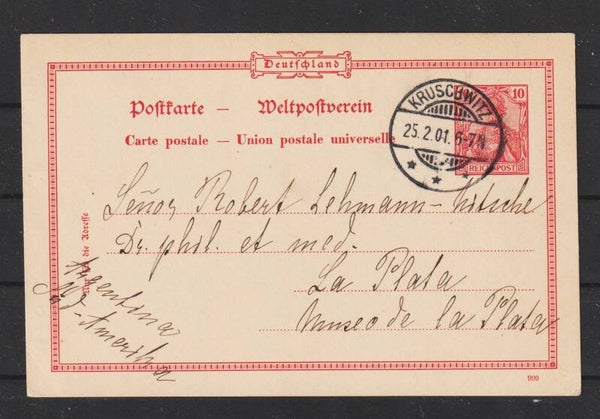 Deutschland
Postkarte — Weltpostverein
Carte postale — Union postale universelle
KRUSCHWITZ
25.2.01. 6-7N
10
REICHSPOST
Señor Robert Lehmann-Nitsche
Dr. phil. et med.
La Plata
Museo de la Plata
Argentina
Süd-Amerika
Nur für die Adresse
999